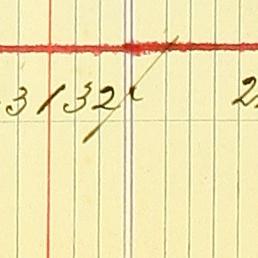 3/32 2